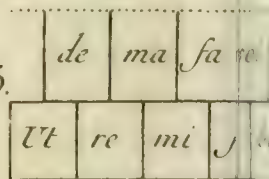 de ma fa re
Ut re mi f